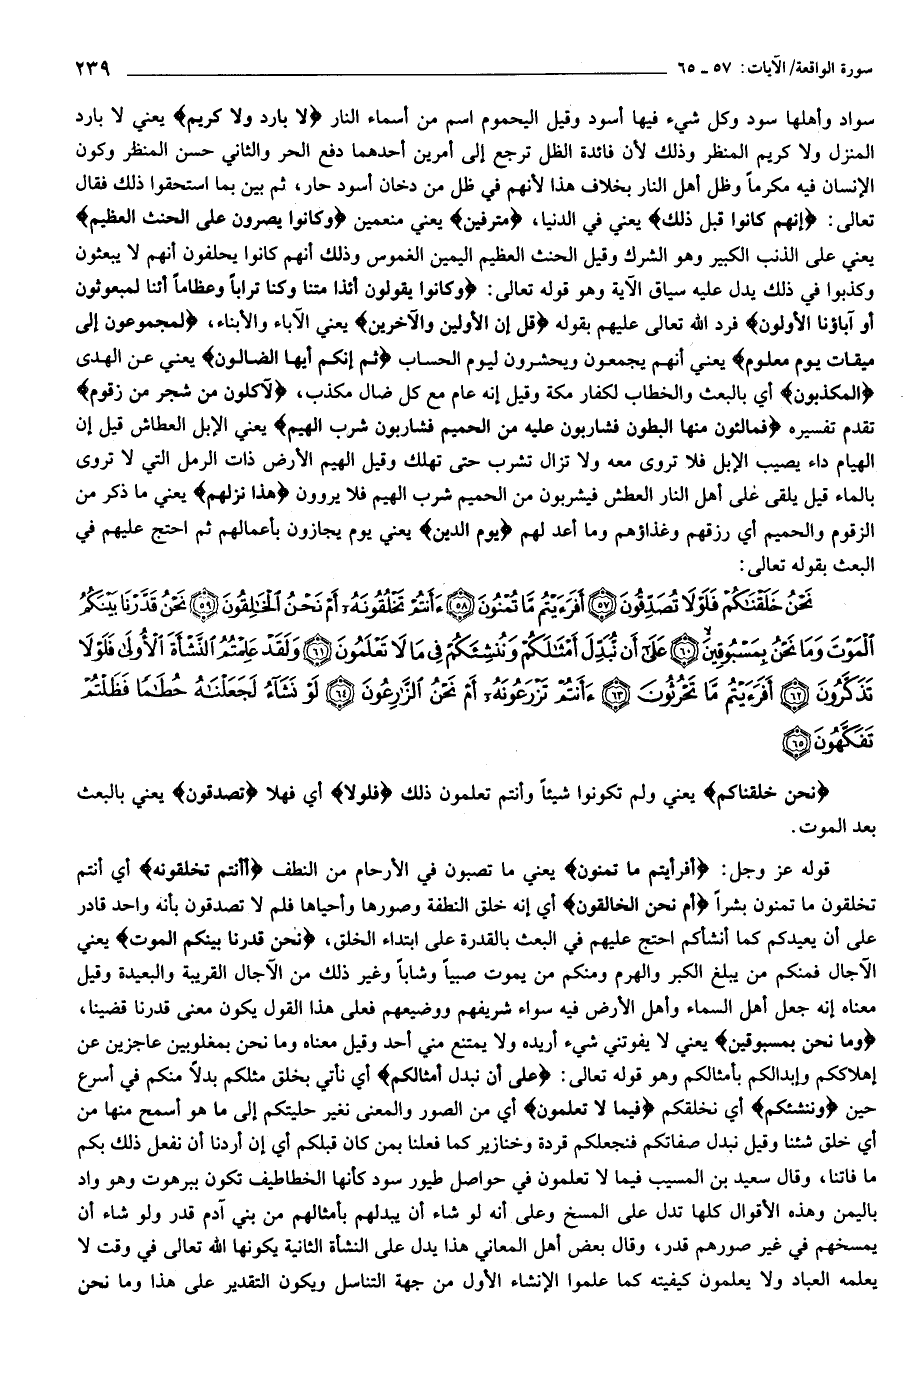 سورة الواقعة/ الآيات: ٥٧ ـ ٦٥ ٢٣٩
سواد وأهلها سود وكل شيء فيها أسود وقيل اليحموم اسم من أسماء النار ﴿لا بارد ولا كريم﴾ يعني لا بارد
المنزل ولا كريم المنظر وذلك لأن فائدة الظل ترجع إلى أمرين أحدهما دفع الحر والثاني حسن المنظر وكون
الإنسان فيه مكرماً وظل أهل النار بخلاف هذا لأنهم في ظل من دخان أسود حار، ثم بين بما استحقوا ذلك فقال
تعالى: ﴿إنهم كانوا قبل ذلك﴾ يعني في الدنيا، ﴿مترفين﴾ يعني منعمين ﴿وكانوا يصرون على الحنث العظيم﴾
يعني على الذنب الكبير وهو الشرك وقيل الحنث العظيم اليمين الغموس وذلك أنهم كانوا يحلفون أنهم لا يبعثون
وكذبوا في ذلك يدل عليه سياق الآية وهو قوله تعالى: ﴿وكانوا يقولون أئذا متنا وكنا تراباً وعظاماً أئنا لمبعوثون
أو آباؤنا الأولون﴾ فرد الله تعالى عليهم بقوله ﴿قل إن الأولين والآخرين﴾ يعني الآباء والأبناء، ﴿لمجموعون إلى
ميقات يوم معلوم﴾ يعني أنهم يجمعون ويحشرون ليوم الحساب ﴿ثم إنكم أيها الضالون﴾ يعني عن الهدى
﴿المكذبون﴾ أي بالبعث والخطاب لكفار مكة وقيل إنه عام مع كل ضال مكذب، ﴿لآكلون من شجر من زقوم﴾
تقدم تفسيره ﴿فمالئون منها البطون فشاربون عليه من الحميم فشاربون شرب الهيم﴾ يعني الإبل العطاش قيل إن
الهيام داء يصيب الإبل فلا تروى معه ولا تزال تشرب حتى تهلك وقيل الهيم الأرض ذات الرمل التي لا تروى
بالماء قيل يلقى على أهل النار العطش فيشربون من الحميم شرب الهيم فلا يروون ﴿هذا نزلهم﴾ يعني ما ذكر من
الزقوم والحميم أي رزقهم وغذاؤهم وما أعد لهم ﴿يوم الدين﴾ يعني يوم يجازون بأعمالهم ثم احتج عليهم في
البعث بقوله تعالى:
نَحْنُ خَلَقْنَاكُمْ فَلَوْلَا تُصَدِّقُونَ ﴿٥٧﴾ أَفَرَءَيْتُم مَّا تُمْنُونَ ﴿٥٨﴾ ءَأَنتُمْ تَخْلُقُونَهُۥٓ أَمْ نَحْنُ ٱلْخَالِقُونَ ﴿٥٩﴾ نَحْنُ قَدَّرْنَا بَيْنَكُمُ
ٱلْمَوْتَ وَمَا نَحْنُ بِمَسْبُوقِينَ ﴿٦٠﴾ عَلَىٰٓ أَن نُّبَدِّلَ أَمْثَالَكُمْ وَنُنشِئَكُمْ فِى مَا لَا تَعْلَمُونَ ﴿٦١﴾ وَلَقَدْ عَلِمْتُمُ ٱلنَّشْأَةَ ٱلْأُولَىٰ فَلَوْلَا
تَذَكَّرُونَ ﴿٦٢﴾ أَفَرَءَيْتُم مَّا تَحْرُثُونَ ﴿٦٣﴾ ءَأَنتُمْ تَزْرَعُونَهُۥٓ أَمْ نَحْنُ ٱلزَّارِعُونَ ﴿٦٤﴾ لَوْ نَشَآءُ لَجَعَلْنَاهُ حُطَامًا فَظَلْتُمْ
تَفَكَّهُونَ ﴿٦٥﴾
﴿نحن خلقناكم﴾ يعني ولم تكونوا شيئاً وأنتم تعلمون ذلك ﴿فلولا﴾ أي فهلا ﴿تصدقون﴾ يعني بالبعث
بعد الموت.
قوله عز وجل: ﴿أفرأيتم ما تمنون﴾ يعني ما تصبون في الأرحام من النطف ﴿أأنتم تخلقونه﴾ أي أنتم
تخلقون ما تمنون بشراً ﴿أم نحن الخالقون﴾ أي إنه خلق النطفة وصورها وأحياها فلم لا تصدقون بأنه واحد قادر
على أن يعيدكم كما أنشأكم احتج عليهم في البعث بالقدرة على ابتداء الخلق، ﴿نحن قدرنا بينكم الموت﴾ يعني
الآجال فمنكم من يبلغ الكبر والهرم ومنكم من يموت صبياً وشاباً وغير ذلك من الآجال القريبة والبعيدة وقيل
معناه إنه جعل أهل السماء وأهل الأرض فيه سواء شريفهم ووضيعهم فعلى هذا القول يكون معنى قدرنا قضينا،
﴿وما نحن بمسبوقين﴾ يعني لا يفوتني شيء أريده ولا يمتنع مني أحد وقيل معناه وما نحن بمغلوبين عاجزين عن
إهلاككم وإبدالكم بأمثالكم وهو قوله تعالى: ﴿على أن نبدل أمثالكم﴾ أي نأتي بخلق مثلكم بدلاً منكم في أسرع
حين ﴿وننشئكم﴾ أي نخلقكم ﴿فيما لا تعلمون﴾ أي من الصور والمعنى نغير حليتكم إلى ما هو أسمج منها من
أي خلق شئنا وقيل نبدل صفاتكم فنجعلكم قردة وخنازير كما فعلنا بمن كان قبلكم أي إن أردنا أن نفعل ذلك بكم
ما فاتنا، وقال سعيد بن المسيب فيما لا تعلمون في حواصل طيور سود كأنها الخطاطيف تكون ببرهوت وهو واد
باليمن وهذه الأقوال كلها تدل على المسخ وعلى أنه لو شاء أن يبدلهم بأمثالهم من بني آدم قدر ولو شاء أن
يمسخهم في غير صورهم قدر، وقال بعض أهل المعاني هذا يدل على النشأة الثانية يكونها الله تعالى في وقت لا
يعلمه العباد ولا يعلمون كيفيته كما علموا الإنشاء الأول من جهة التناسل ويكون التقدير على هذا وما نحن